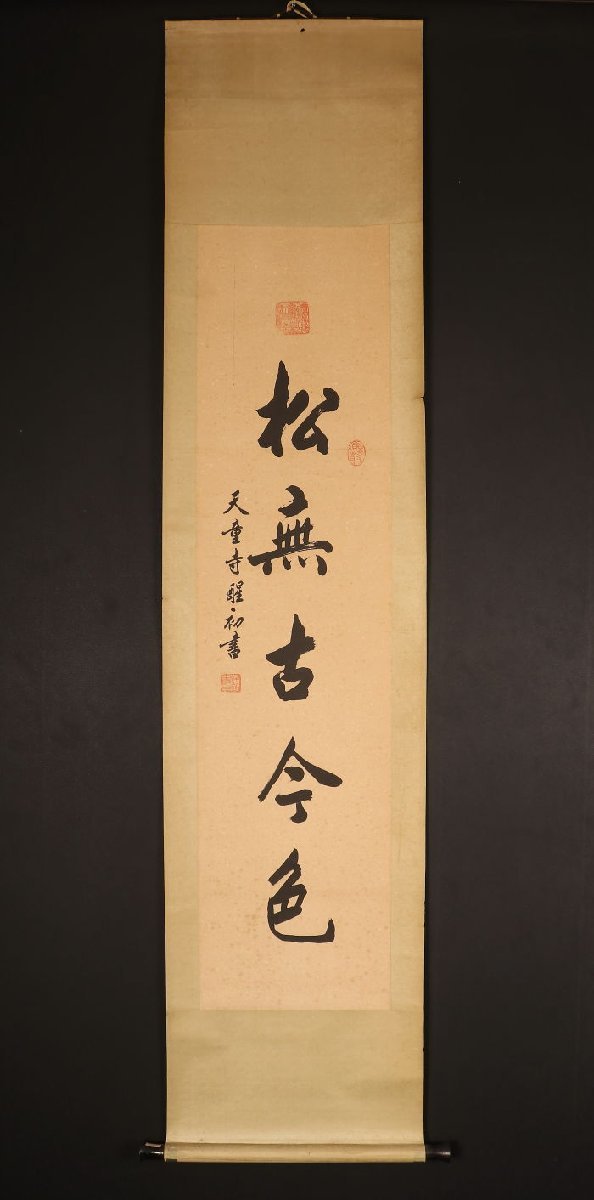 松無古今色
天童寺醒初書